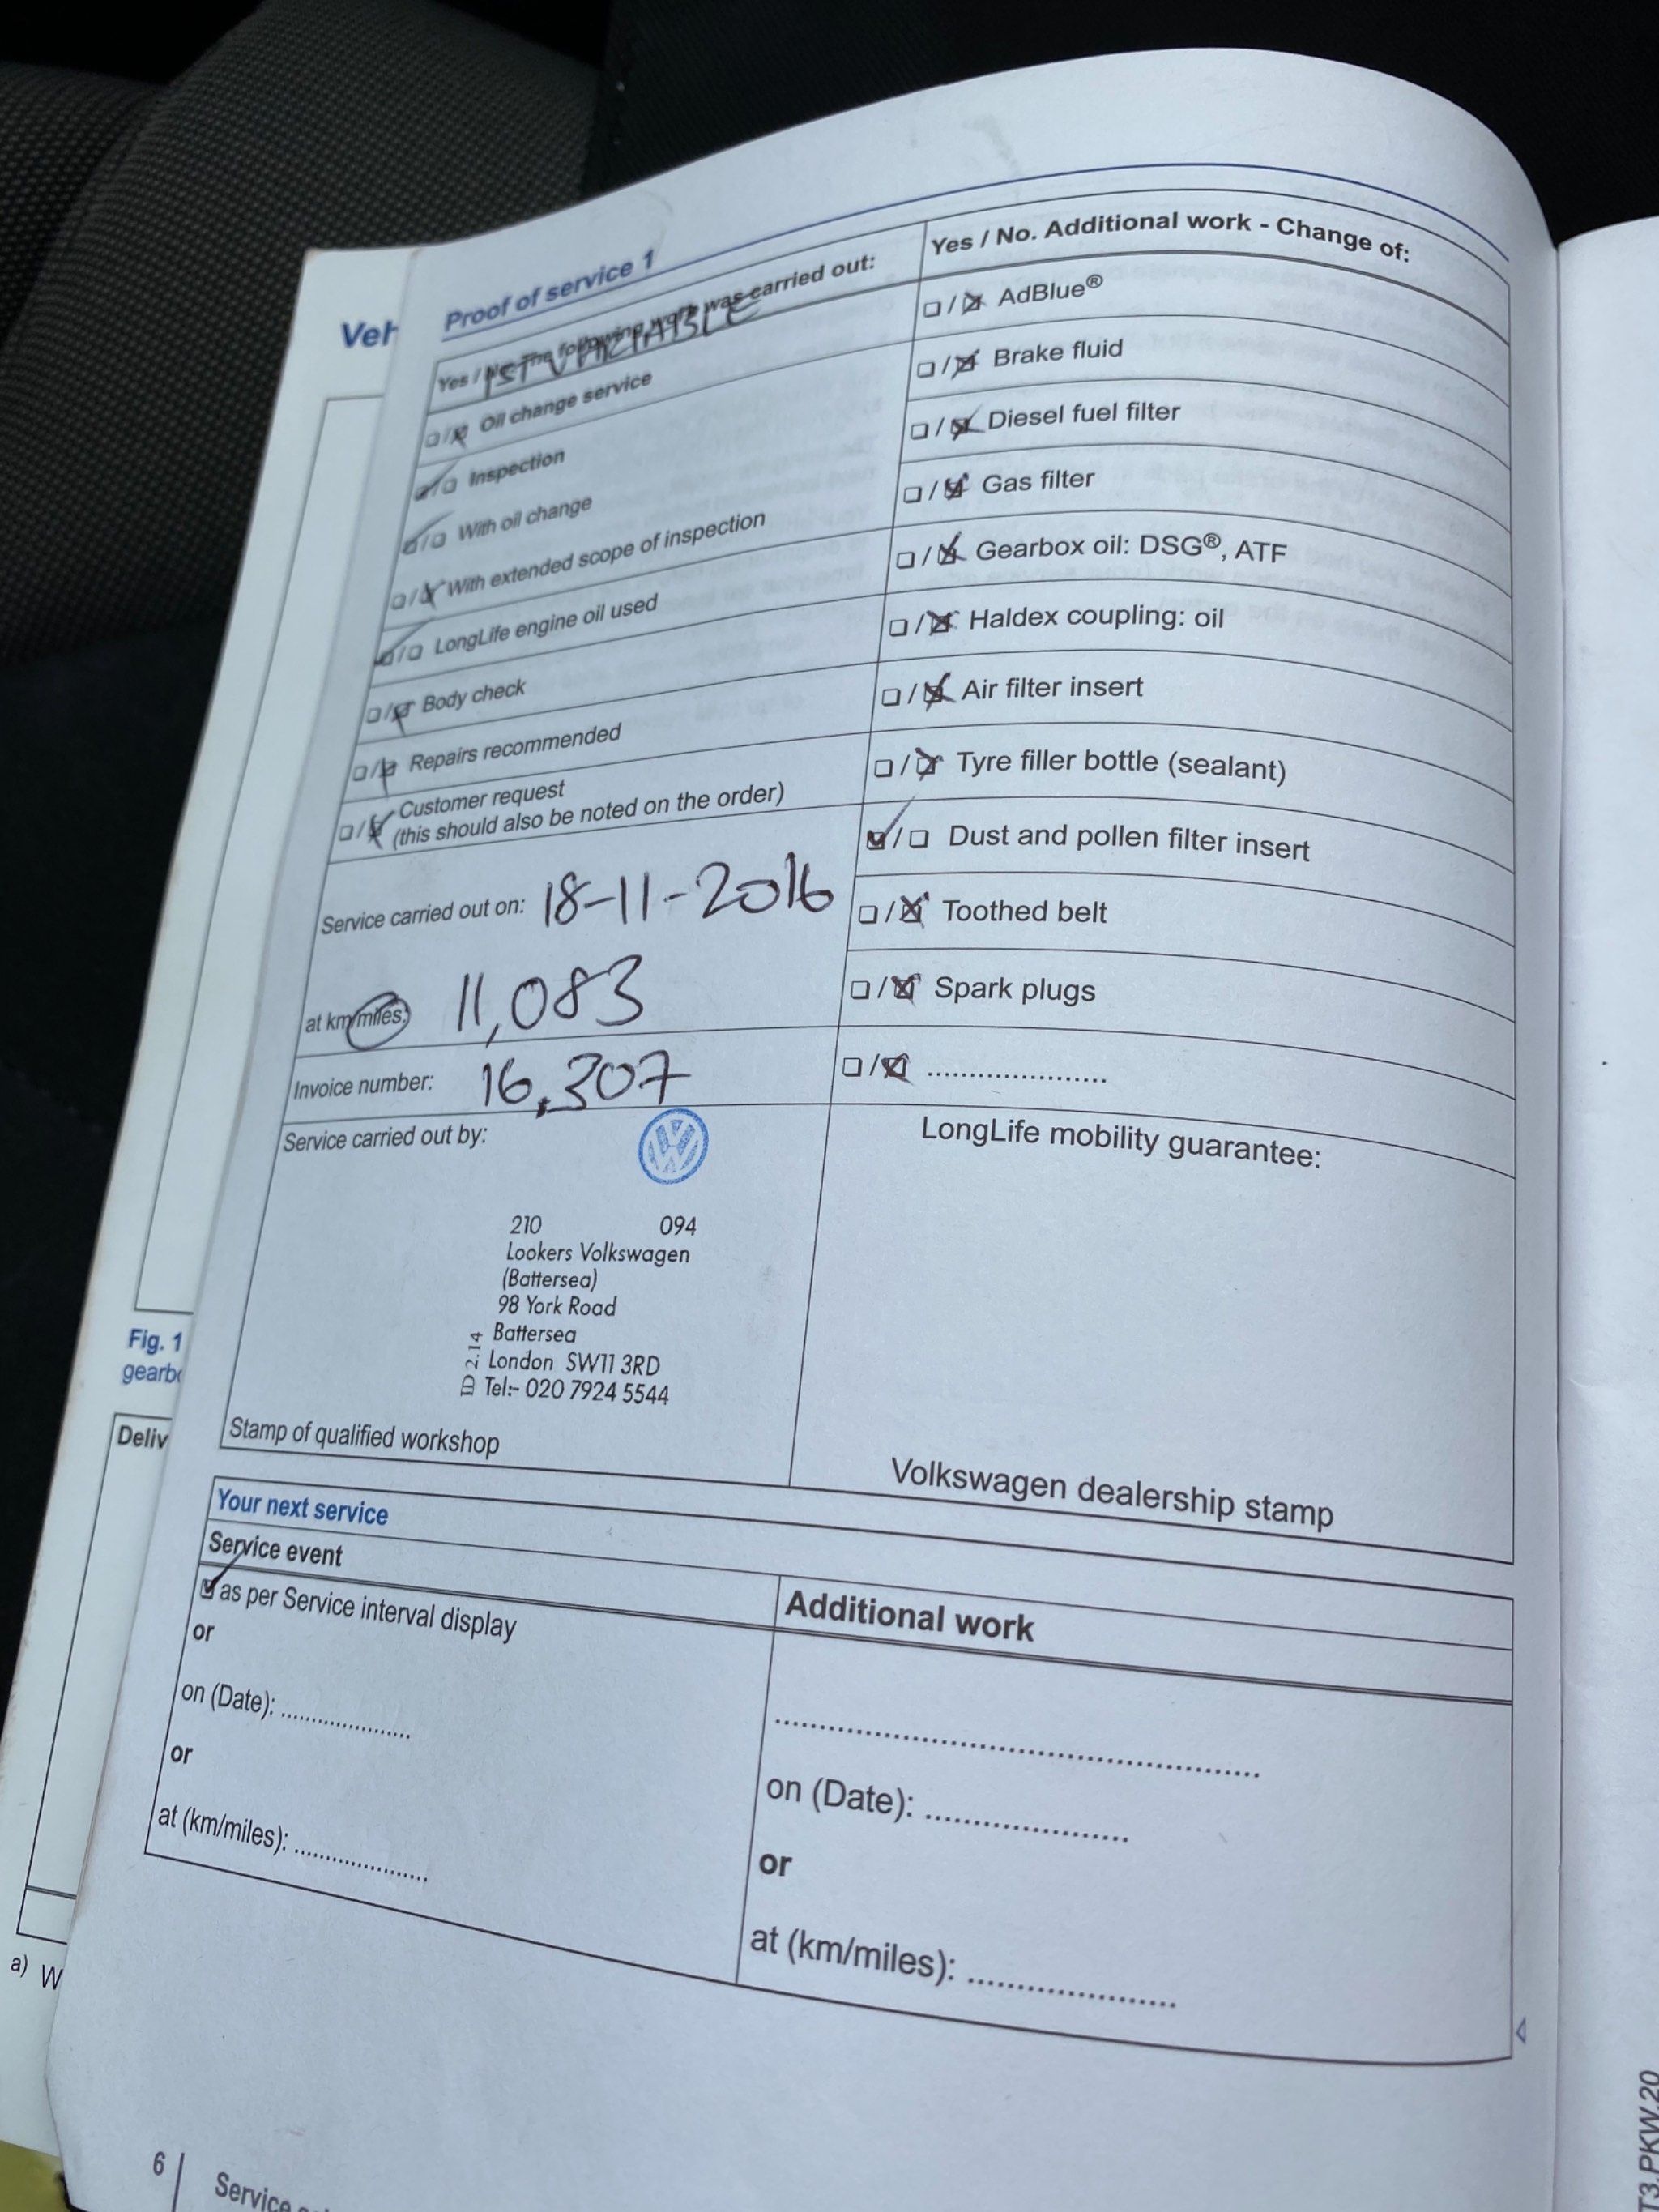 Proof of service 1
Yes / No The following work was carried out:
1ST VARIABLE
Oil change service
Inspection
With oil change
With extended scope of inspection
LongLife engine oil used
Body check
Repairs recommended
Customer request
(this should also be noted on the order)
Service carried out on: 18-11-2016
at km/miles: 11,083
Invoice number: 16,307
Service carried out by:
210 094
Lookers Volkswagen
(Battersea)
98 York Road
Battersea
London SW11 3RD
Tel:- 020 7924 5544
ID 2.14
Stamp of qualified workshop
Yes / No. Additional work - Change of:
AdBlue®
Brake fluid
Diesel fuel filter
Gas filter
Gearbox oil: DSG®, ATF
Haldex coupling: oil
Air filter insert
Tyre filler bottle (sealant)
Dust and pollen filter insert
Toothed belt
Spark plugs
.....................
LongLife mobility guarantee:
Volkswagen dealership stamp
Your next service
Service event
as per Service interval display
or
on (Date): .....................
or
at (km/miles): .....................
Additional work
on (Date): .....................
or
at (km/miles): .....................
6
Service
Veh
Fig. 1
gearbo
Deliv
a) W
T3.PKW.20